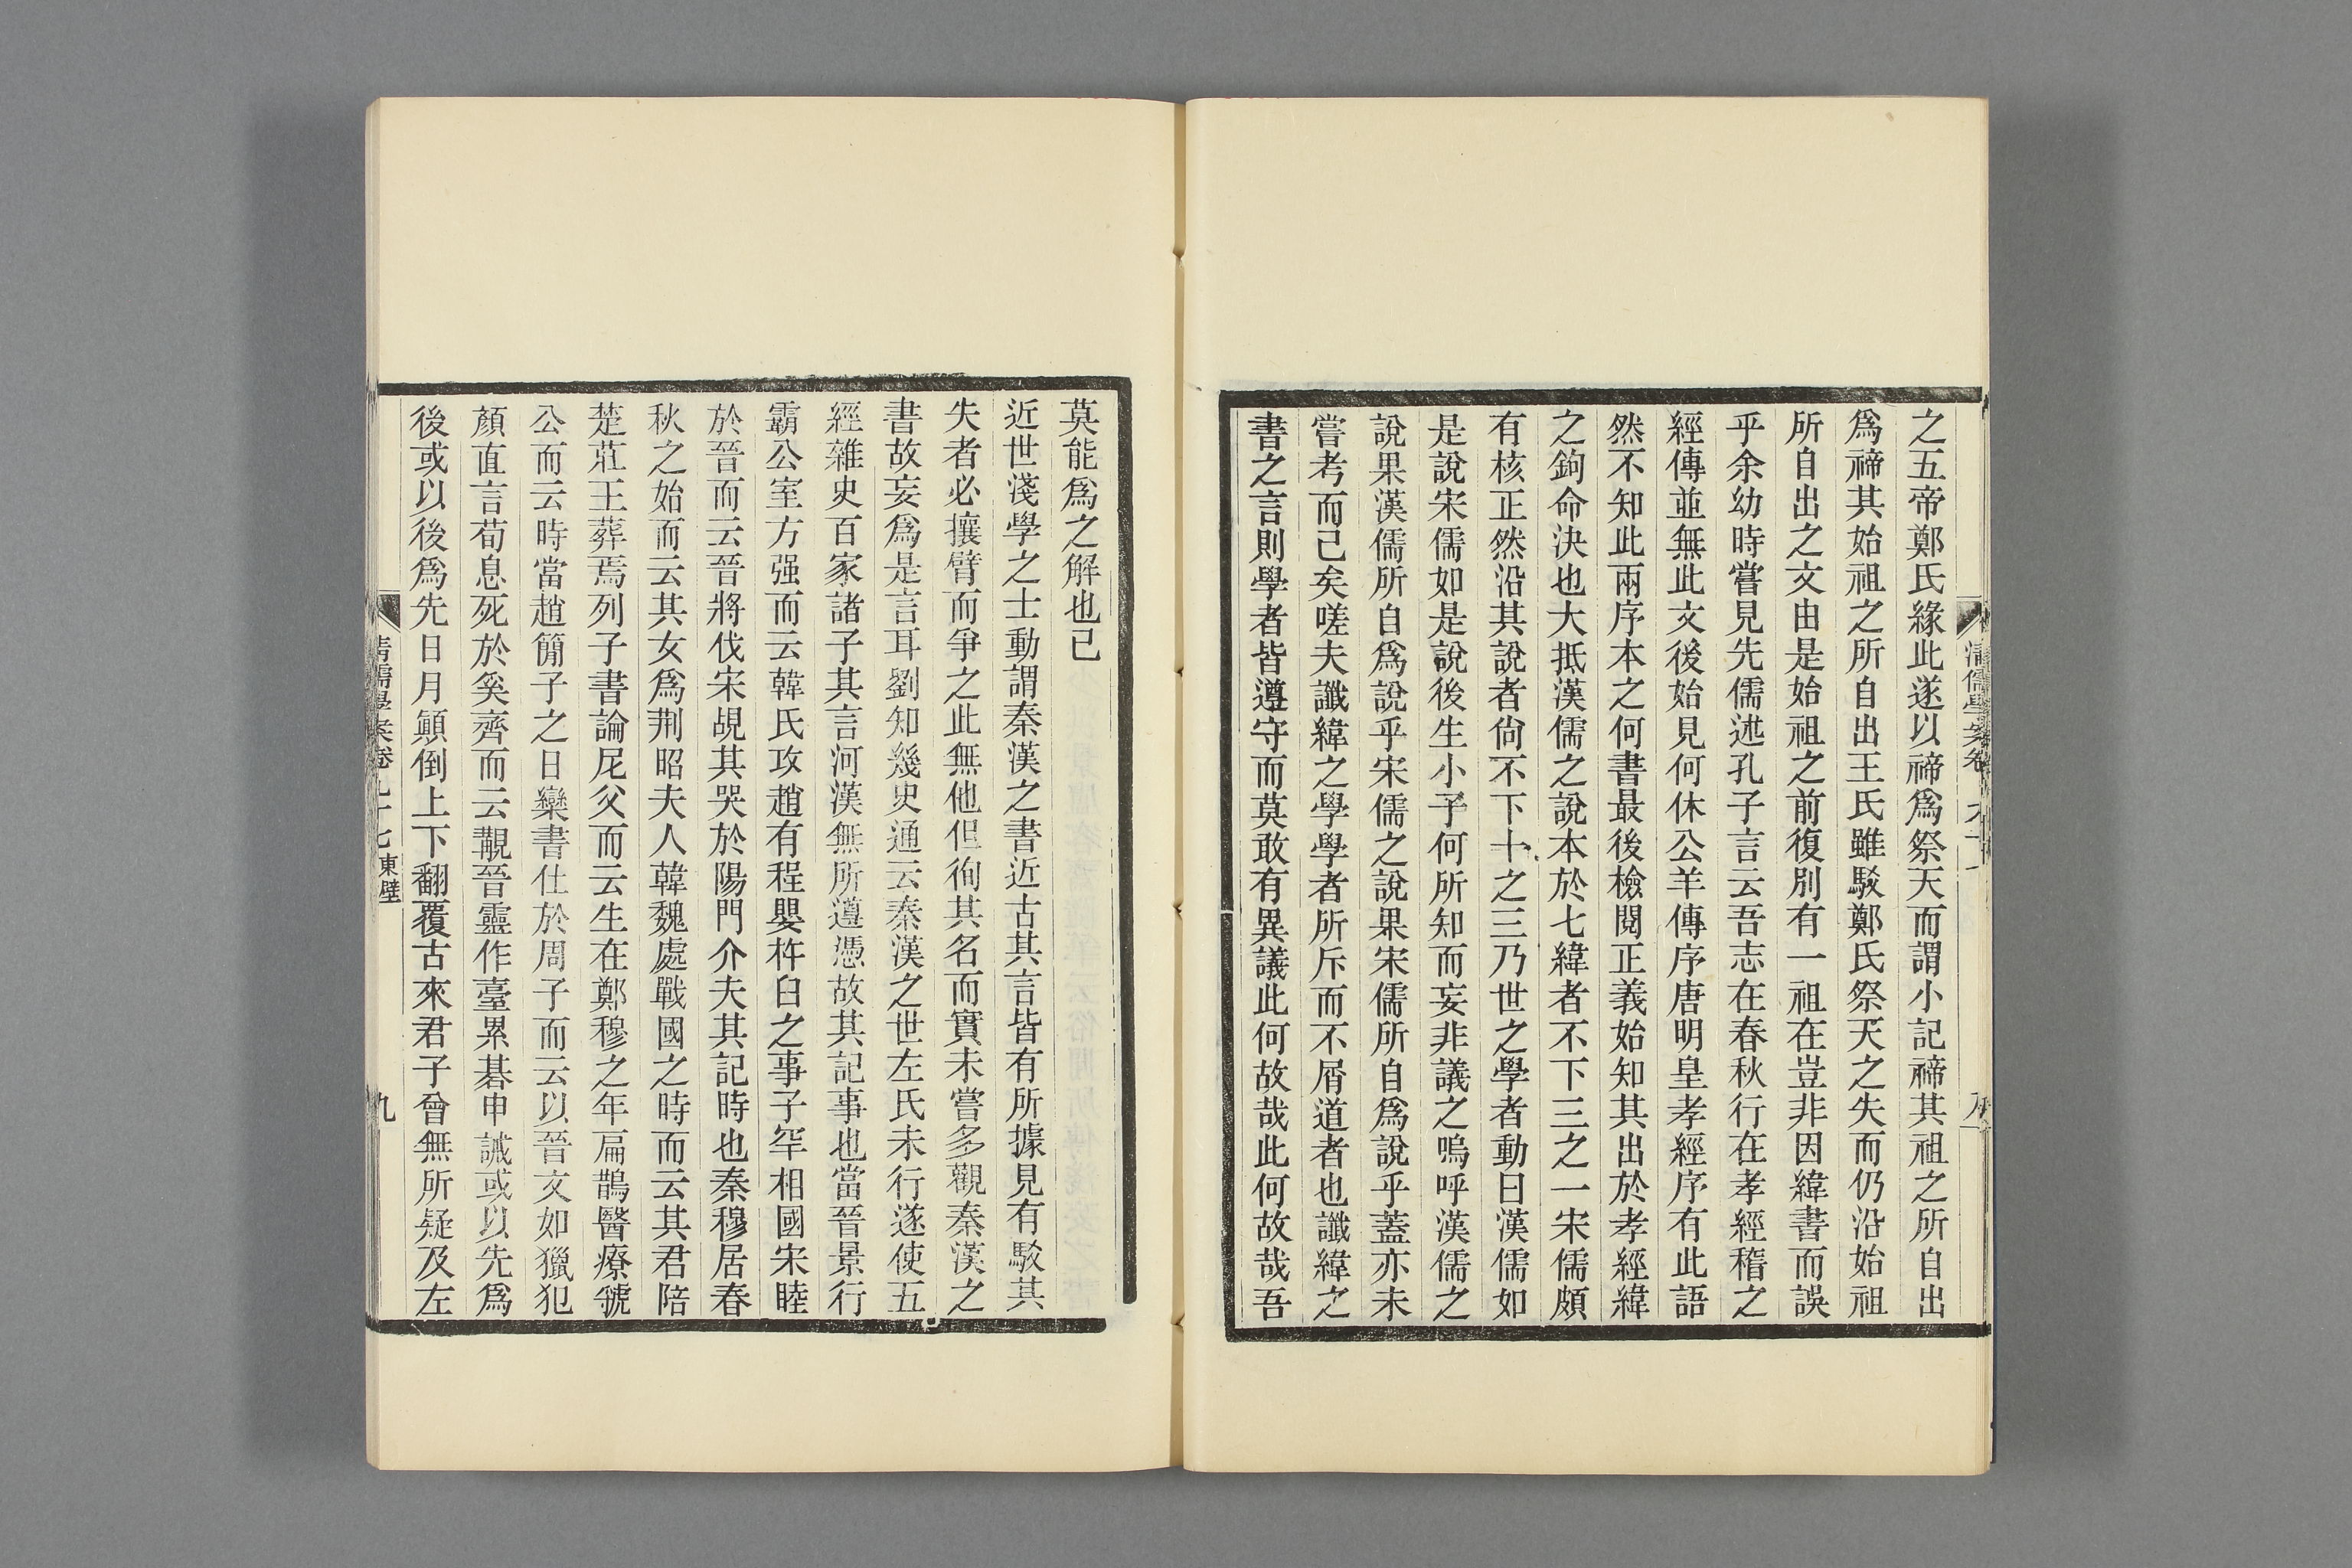 之五帝鄭氏緣此遂以禘爲祭天而謂小記禘其祖之所自出
爲禘其始祖之所自出王氏雖駁鄭氏祭天之失而仍沿始祖
所自出之文由是始祖之前復別有一祖在豈非因緯書而誤
乎余幼時嘗見先儒述孔子言云吾志在春秋行在孝經稽之
經傳並無此文後始見何休公羊傳序唐明皇孝經序有此語
然不知此兩序本之何書最後檢閱正義始知其出於孝經緯
之鉤命決也大抵漢儒之說本於七緯者不下三之一宋儒頗
有核正然沿其說者尙不下十之三乃世之學者動曰漢儒如
是說宋儒如是說後生小子何所知而妄非議之嗚呼漢儒之
說果漢儒所自爲說乎宋儒之說果宋儒所自爲說乎蓋亦未
嘗考而已矣嗟夫讖緯之學學者所斥而不屑道者也讖緯之
書之言則學者皆遵守而莫敢有異議此何故哉此何故哉吾
莫能爲之解也已
近世淺學之士動謂秦漢之書近古其言皆有所據見有駁其
失者必攘臂而爭之此無他但徇其名而實未嘗多觀秦漢之
書故妄爲是言耳劉知幾史通云秦漢之世左氏未行遂使五
經雜史百家諸子其言河漢無所遵憑故其記事也當晉景行
霸公室方强而云韓氏攻趙有程嬰杵臼之事子罕相國宋睦
於晉而云晉將伐宋覘其哭於陽門介夫其記時也秦穆居春
秋之始而云其女爲荆昭夫人韓魏處戰國之時而云其君陪
楚莊王葬焉列子書論尼父而云生在鄭穆之年扁鵲醫療虢
公而云時當趙簡子之日欒書仕於周子而云以晉文如獵犯
顏直言荀息死於奚齊而云覩晉靈作臺累碁申誡或以先爲
後或以後爲先日月顚倒上下翻覆古來君子曾無所疑及左
清儒學案卷九十七 東壁
九